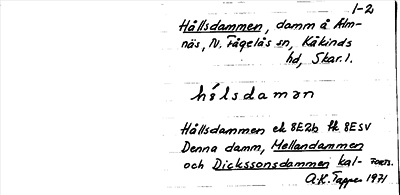 1-2
Hållsdammen, damm å Alm-
näs, N. Fågelås sn, Kåkinds
hd, Skar. l.
hǻlsdamən
Hållsdammen ek 8E2b fk 8ESV
Denna damm, Mellandammen
och Dickssonsdammen kal-
A.K. Tapper 1971